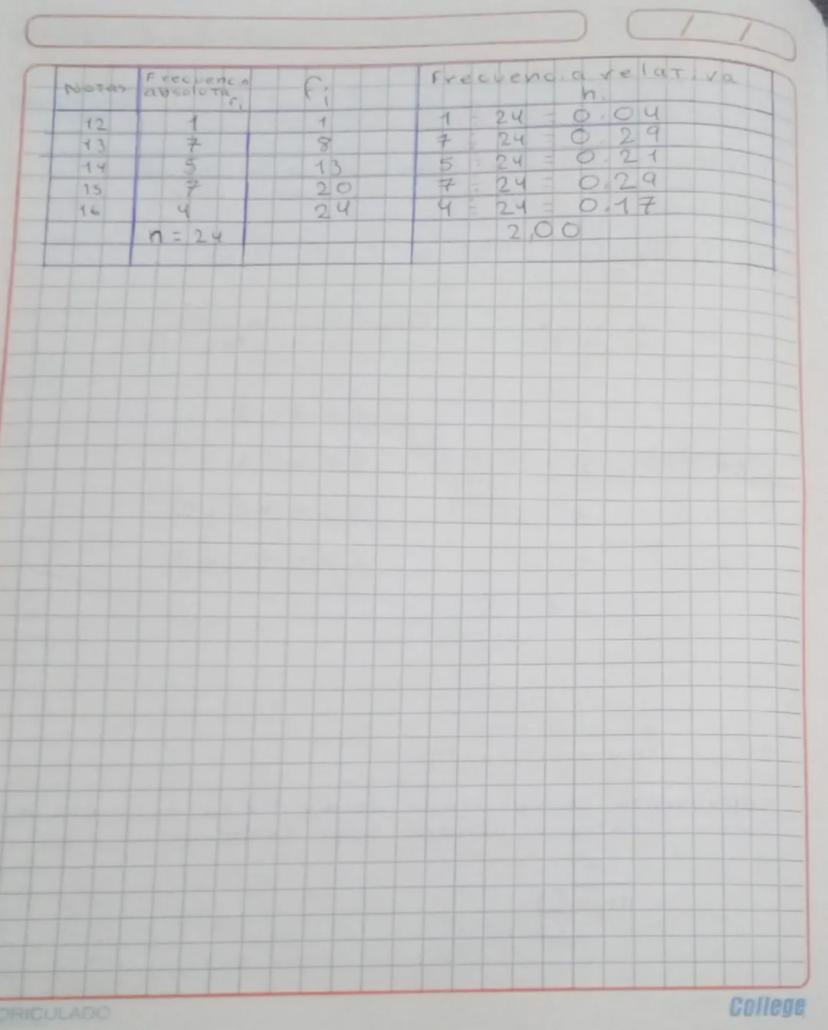 Notas Frecuencia absoluta fi Fi Frecuencia relativa hi
12 1 1 1 ÷ 24 = 0.04
13 7 8 7 ÷ 24 = 0.29
14 5 13 5 ÷ 24 = 0.21
15 7 20 7 ÷ 24 = 0.29
16 4 24 4 ÷ 24 = 0.17
n = 24 2,00
College